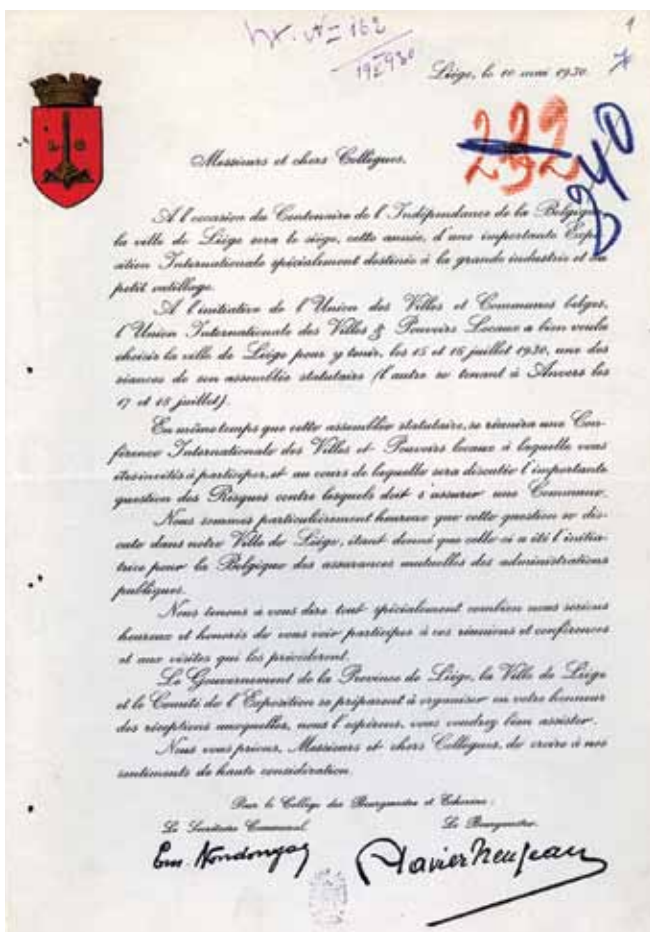 162
1930
1
Liége, le 10 mai 1930.
232
240
L G
Messieurs et chers Collègues,
A l'occasion du Centenaire de l'Indépendance de la Belgique,
la ville de Liége sera le siège, cette année, d'une importante Expo-
sition Internationale spécialement destinée à la grande industrie et au
petit outillage.
A l'initiative de l'Union des Villes et Communes belges,
l'Union Internationale des Villes & Pouvoirs Locaux a bien voulu
choisir la ville de Liége pour y tenir, les 15 et 16 juillet 1930, une des
séances de son assemblée statutaire (l'autre se tenant à Anvers les
17 et 18 juillet).
En même temps que cette assemblée statutaire, se réunira une Con-
férence Internationale des Villes et Pouvoirs locaux à laquelle vous
êtes invités à participer, et au cours de laquelle sera discutée l'importante
question des Risques contre lesquels doit s'assurer une Commune.
Nous sommes particulièrement heureux que cette question se dis-
cute dans notre Ville de Liége, étant donné que celle-ci a été l'initia-
trice pour la Belgique des assurances mutuelles des administrations
publiques.
Nous tenons à vous dire tout spécialement combien nous serions
heureux et honorés de vous voir participer à ces réunions et conférences
et aux visites qui les précéderont.
Le Gouvernement de la Province de Liége, la Ville de Liége
et le Comité de l'Exposition se préparent à organiser en votre honneur
des réceptions auxquelles, nous l'espérons, vous voudrez bien assister.
Nous vous prions, Messieurs et chers Collègues, de croire à nos
sentiments de haute considération.
Pour le Collège des Bourgmestre et Echevins:
Le Secrétaire Communal. Le Bourgmestre.
Xavier Neujean